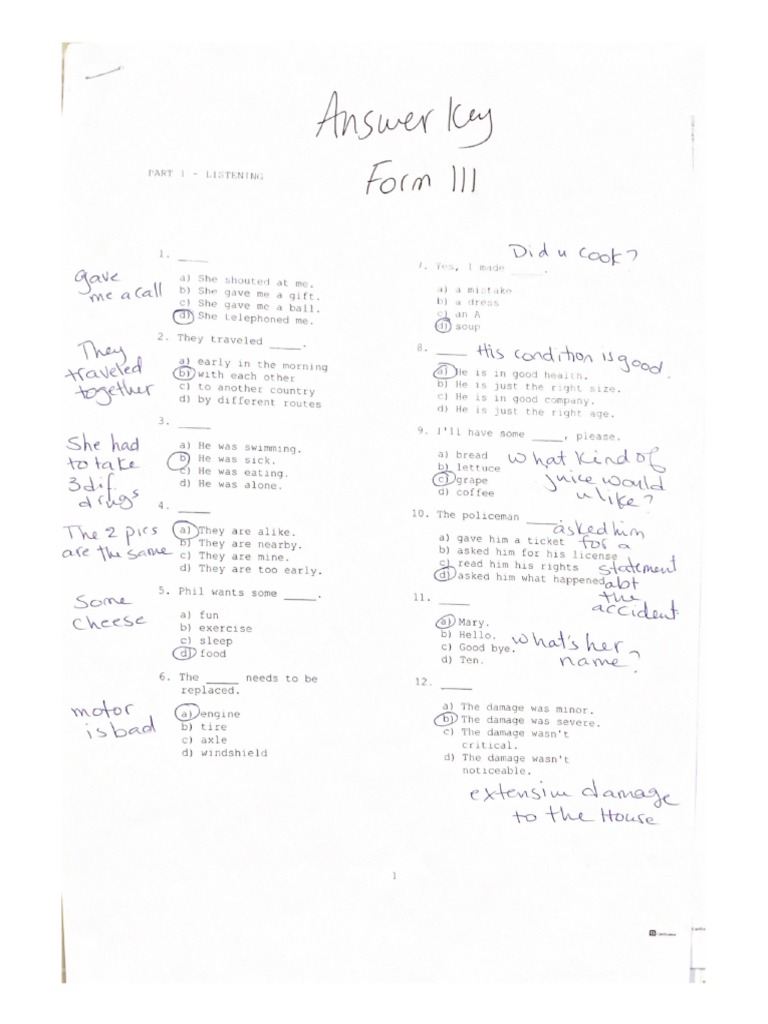 Answer Key
Form III
PART 1 - LISTENING
1. ____
gave
me a call
a) She shouted at me.
b) She gave me a gift.
c) She gave me a ball.
d) She telephoned me.
2. They traveled ____.
They
traveled
together
a) early in the morning
b) with each other
c) to another country
d) by different routes
3. ____
She had
to take
3 dif
drugs
a) He was swimming.
b) He was sick.
c) He was eating.
d) He was alone.
4. ____
The 2 pics
are the same
a) They are alike.
b) They are nearby.
c) They are mine.
d) They are too early.
5. Phil wants some ____.
Some
cheese
a) fun
b) exercise
c) sleep
d) food
6. The ____ needs to be
replaced.
motor
is bad
a) engine
b) tire
c) axle
d) windshield
Did u cook?
7. Yes, I made ____.
a) a mistake
b) a dress
c) an A
d) soup
8. ____ His condition is good.
a) He is in good health.
b) He is just the right size.
c) He is in good company.
d) He is just the right age.
9. I'll have some ____, please.
a) bread
b) lettuce
c) grape
d) coffee
what kind of
juice would
u like?
10. The policeman ____
a) gave him a ticket
b) asked him for his license
c) read him his rights
d) asked him what happened
asked him
for a
statement
abt
the
accident
11. ____
a) Mary.
b) Hello.
c) Good bye.
d) Ten.
what's her
name?
12. ____
a) The damage was minor.
b) The damage was severe.
c) The damage wasn't
critical.
d) The damage wasn't
noticeable.
extensive damage
to the House
1